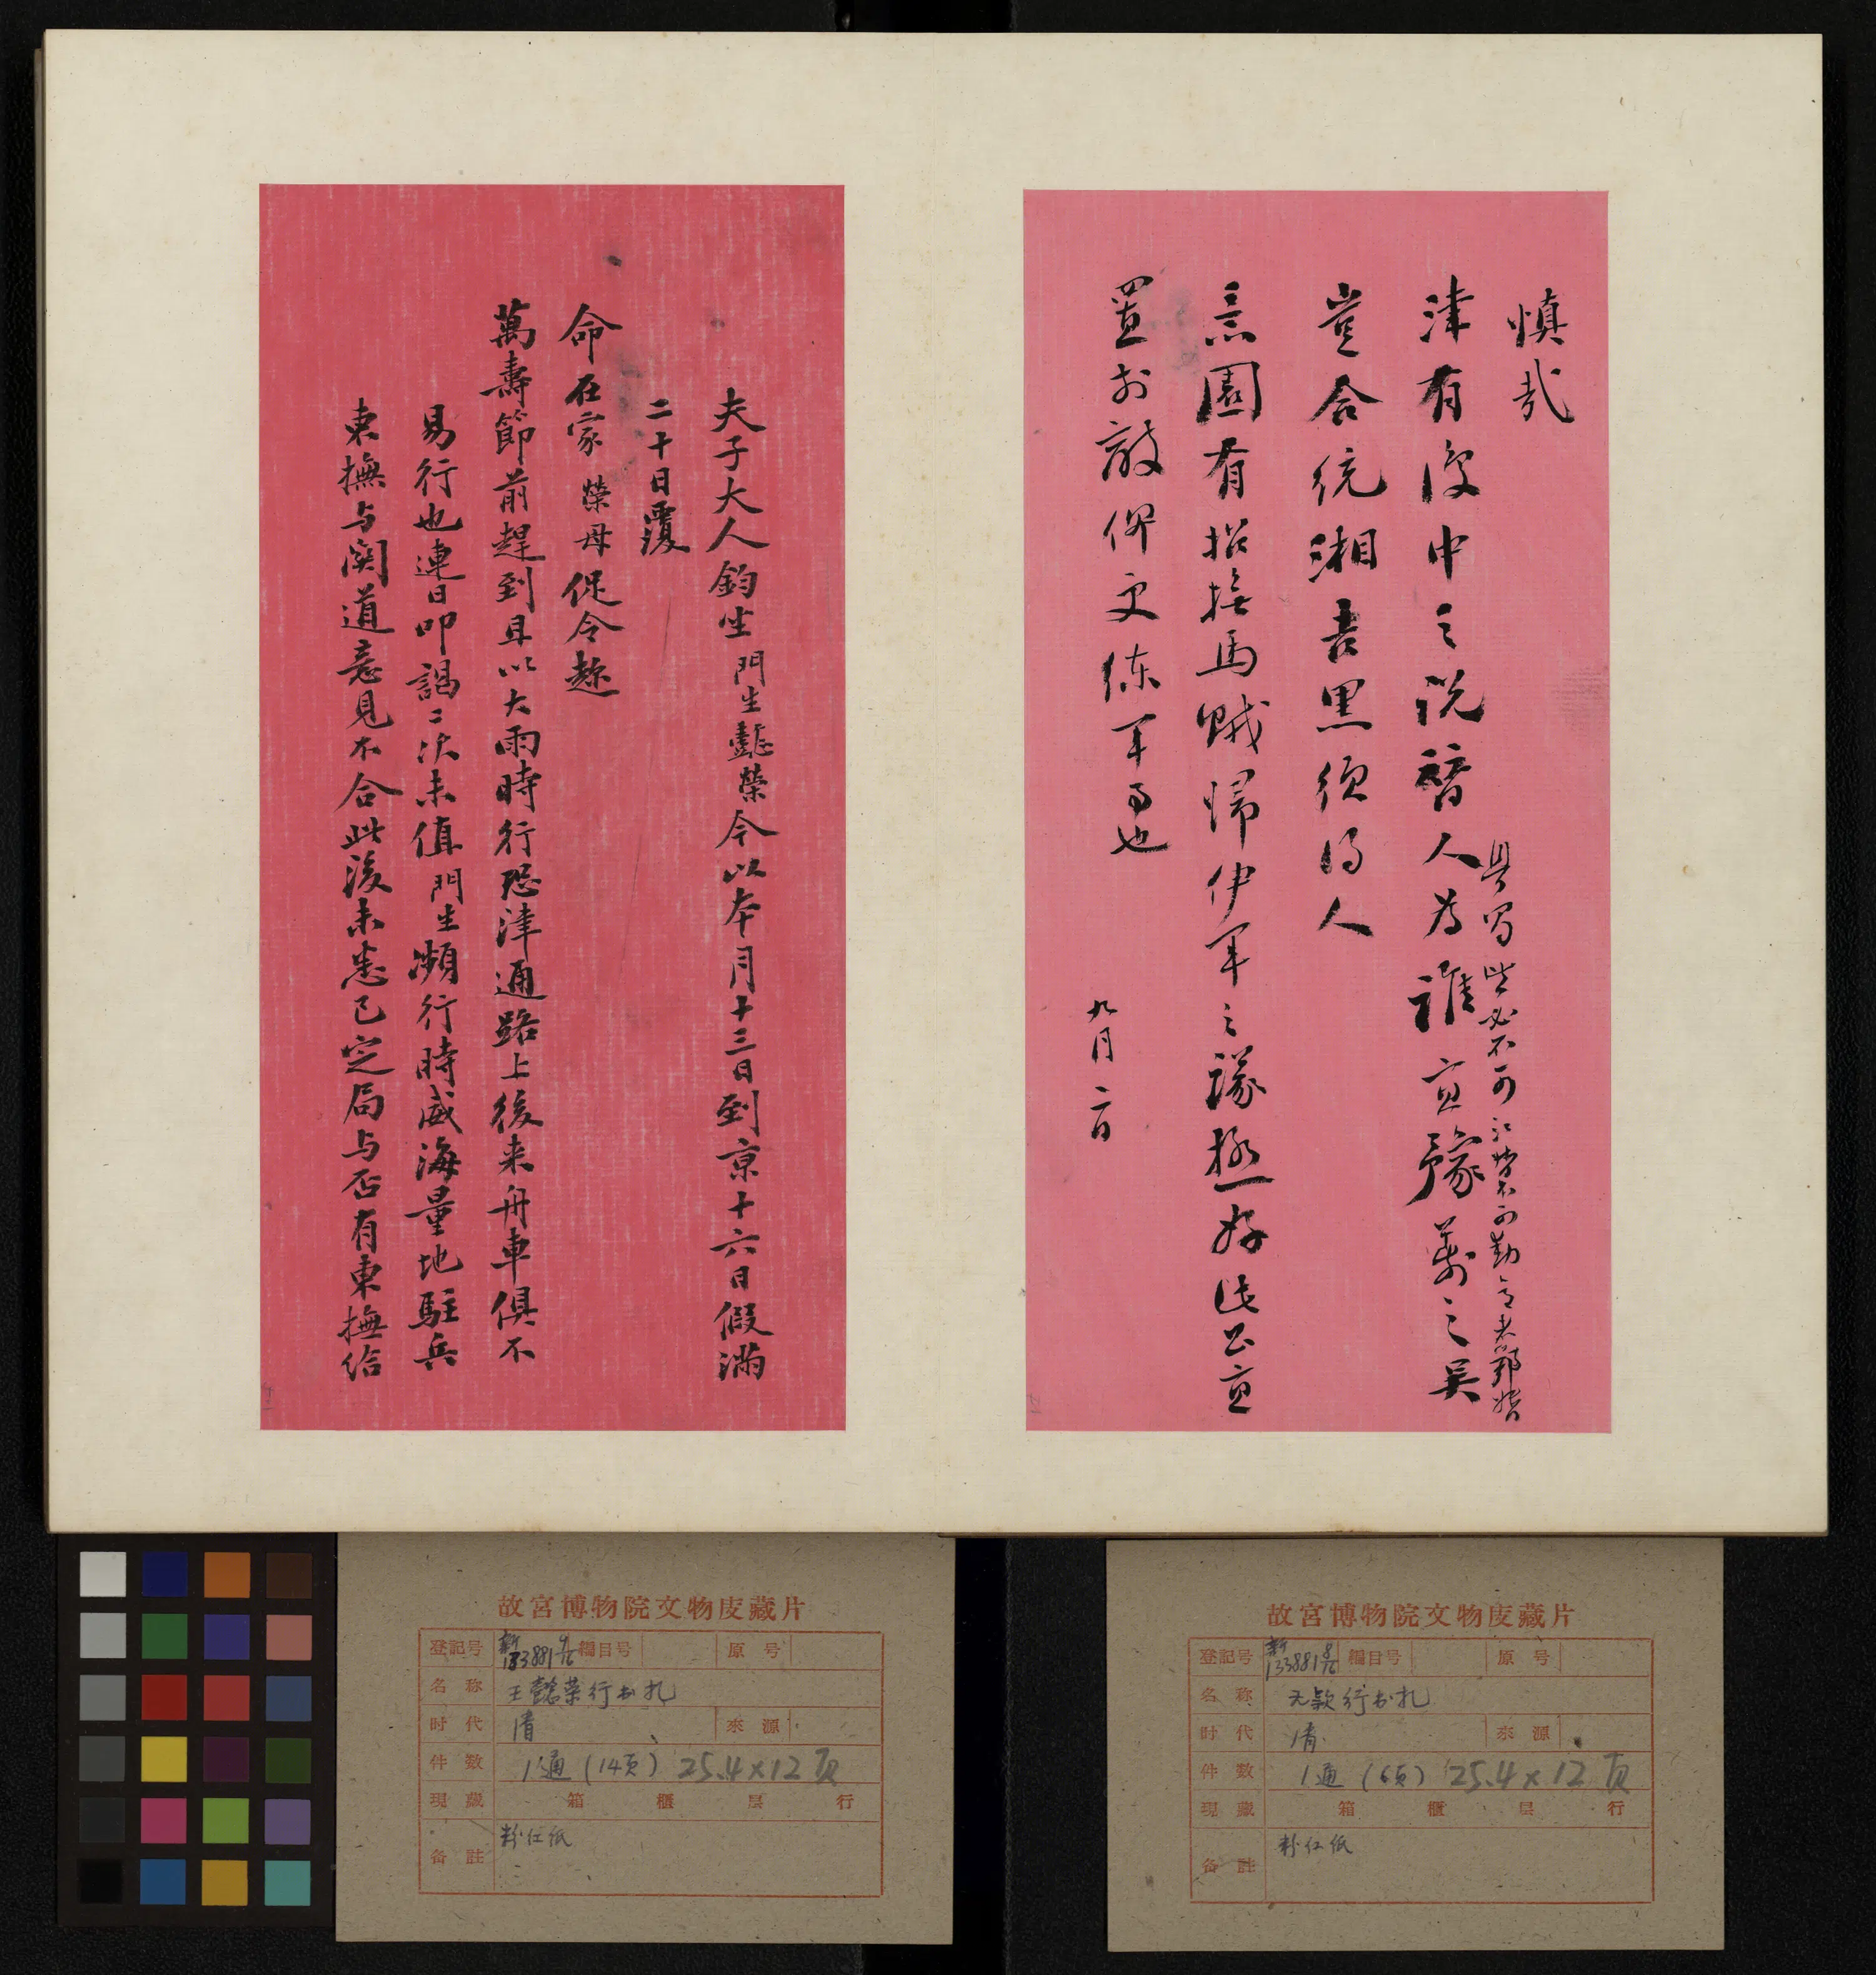 慎哉
津有後申之说替人为谁宜豫荐之吴
豈合统湘書黑须得人
言園有招撫馬贼归伊军之議极好此公宜
置於散僚文练军可也
九月二日
夫子大人鈞坐門生懿榮今以本月十三日到京十六日假滿
二十日覆
命在家榮母促令趂
萬壽節前趕到且以大雨時行恐津通路上後来舟車俱不
易行也連日叩謁二次未值門生瀕行時威海量地駐兵
東撫与関道意見不合此後未悉已定局与否有東撫給
故宮博物院文物庋藏片
登記号 新133881 9/16 編目号 原号
名称 王懿荣行书札
时代 清 來源
件数 1通(14页) 25.4×12页
現藏 箱 櫃 层 行
备註 粉红纸
故宮博物院文物庋藏片
登記号 新133881 8/16 編目号 原号
名称 无款行书札
时代 清 來源
件数 1通(6页) 25.4×12页
現藏 箱 櫃 层 行
备註 粉红纸